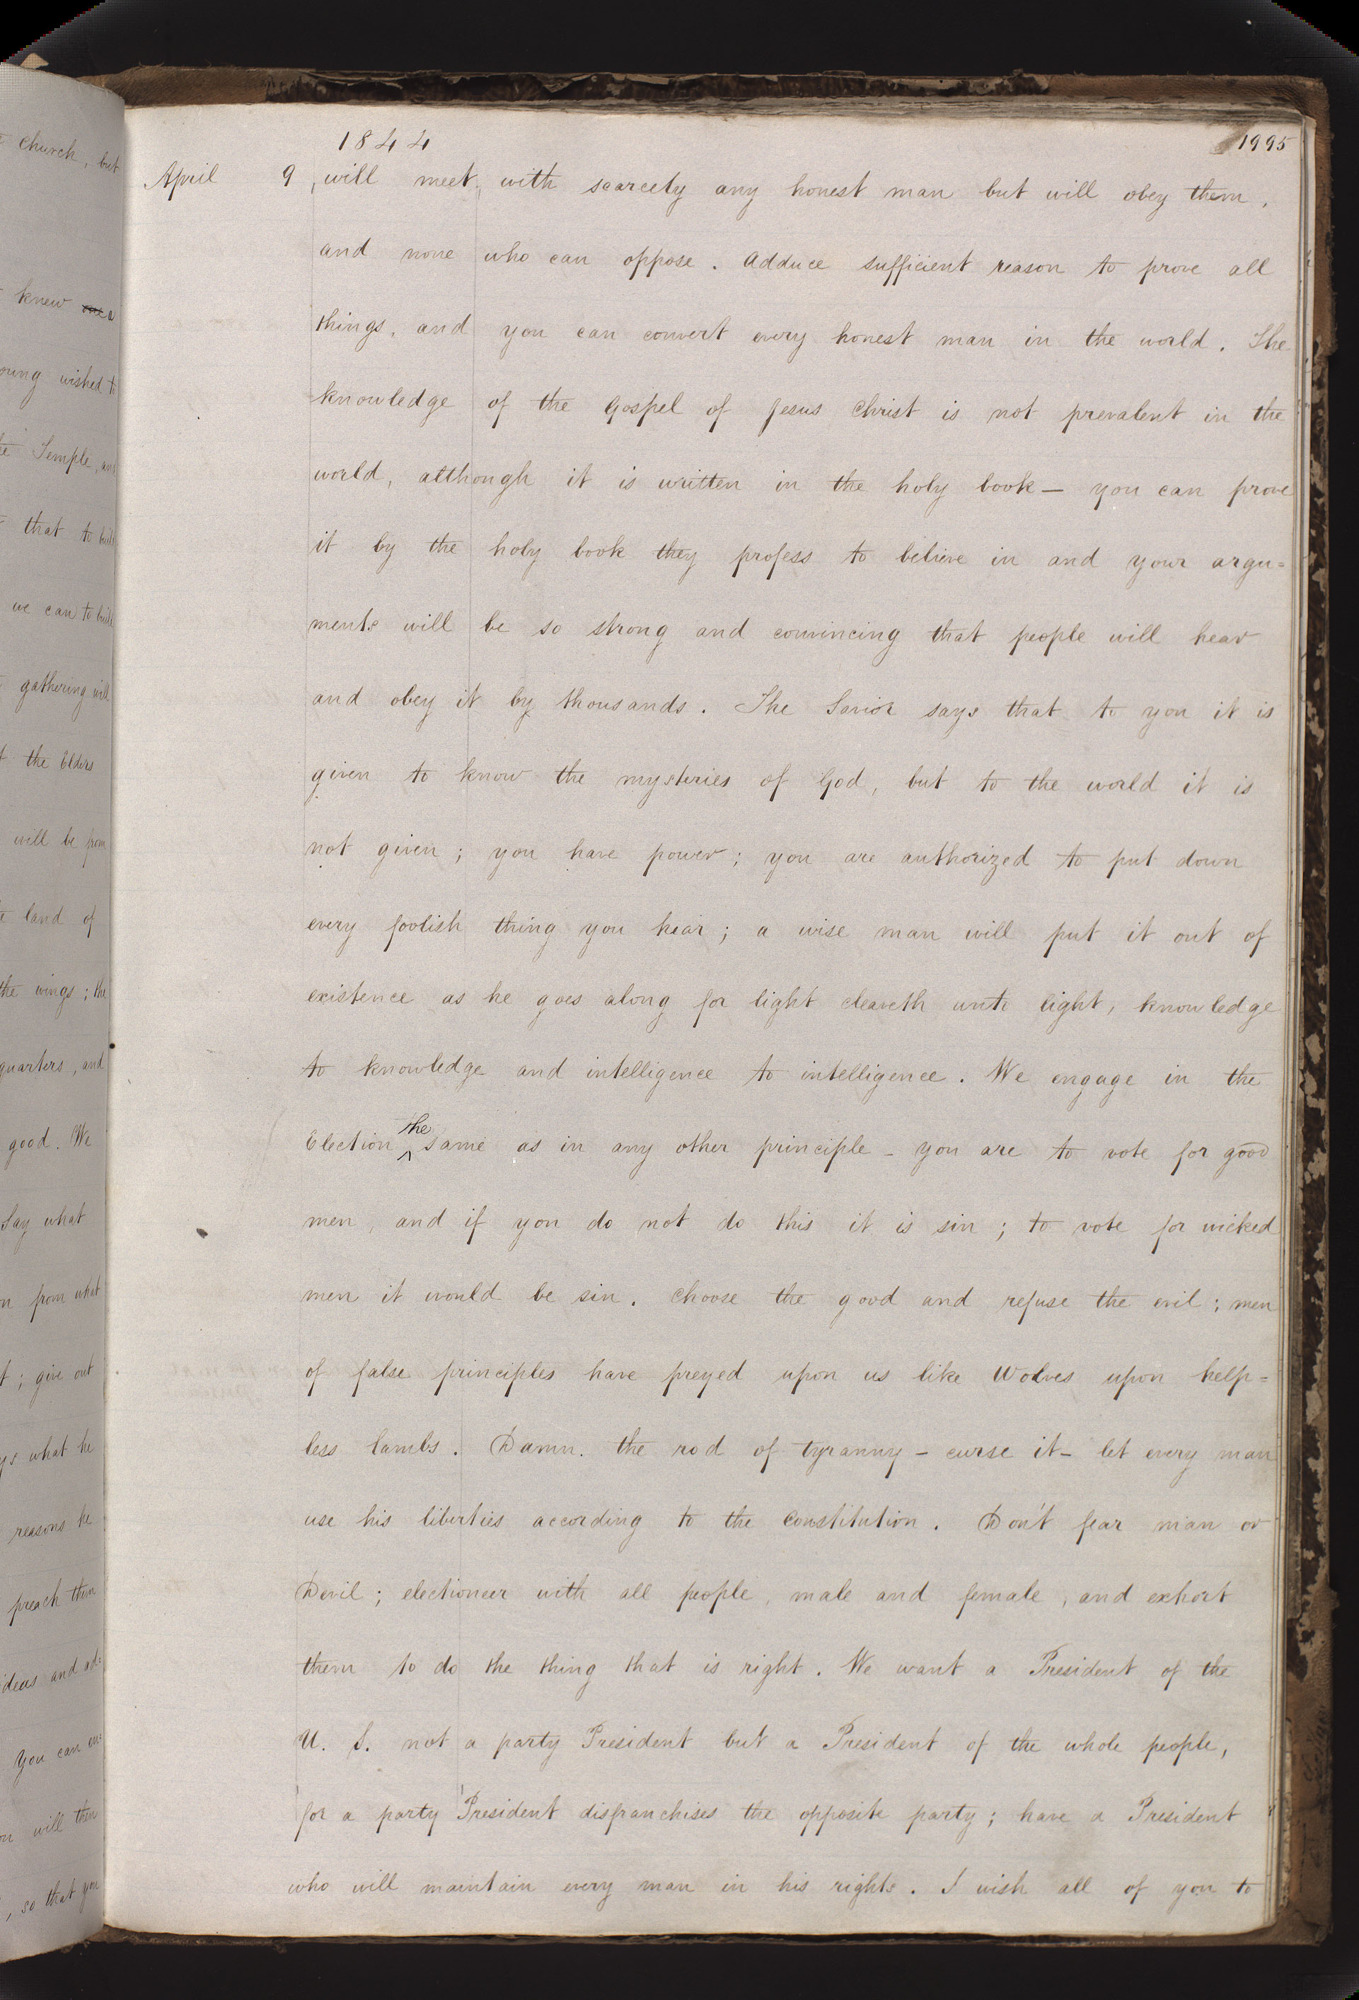 church, but
knew one a
oung wished to
Temple, and
that to build
we can to build
gathering will
the Elders
will be from
land of
the wings; the
quarters, and
good. We
Say what
from what
; give out
what he
reasons he
preach them
ideas and ad-
You can en-
will then
, so that you
1844
1995
April 9 will meet, with scarcely any honest man but will obey them,
and none who can oppose. Adduce sufficient reason to prove all
things, and you can convert every honest man in the world. The
knowledge of the Gospel of Jesus Christ is not prevalent in the
world, although it is written in the holy book— you can prove
it by the holy book they profess to believe in and your argu=
ments will be so strong and convincing that people will hear
and obey it by thousands. The Savior says that to you it is
given to know the mysteries of God, but to the world it is
not given; you have power; you are authorized to put down
every foolish thing you hear; a wise man will put it out of
existence as he goes along for light cleaveth unto light, knowledge
to knowledge and intelligence to intelligence. We engage in the
Election ^the same as in any other principle - you are to vote for good
men, and if you do not do this it is sin; to vote for wicked
men it would be sin. Choose the good and refuse the evil; men
of false principles have preyed upon us like Wolves upon help=
less lambs. Damn. the rod of tyranny - curse it- let every man
use his liberties according to the Constitution. Don't fear man or
Devil; electioneer with all people, male and female, and exhort
them to do the thing that is right. We want a President of the
U. S. not a party President but a President of the whole people,
for a party President disfranchises the opposite party; have a President
who will maintain every man in his rights. I wish all of you to